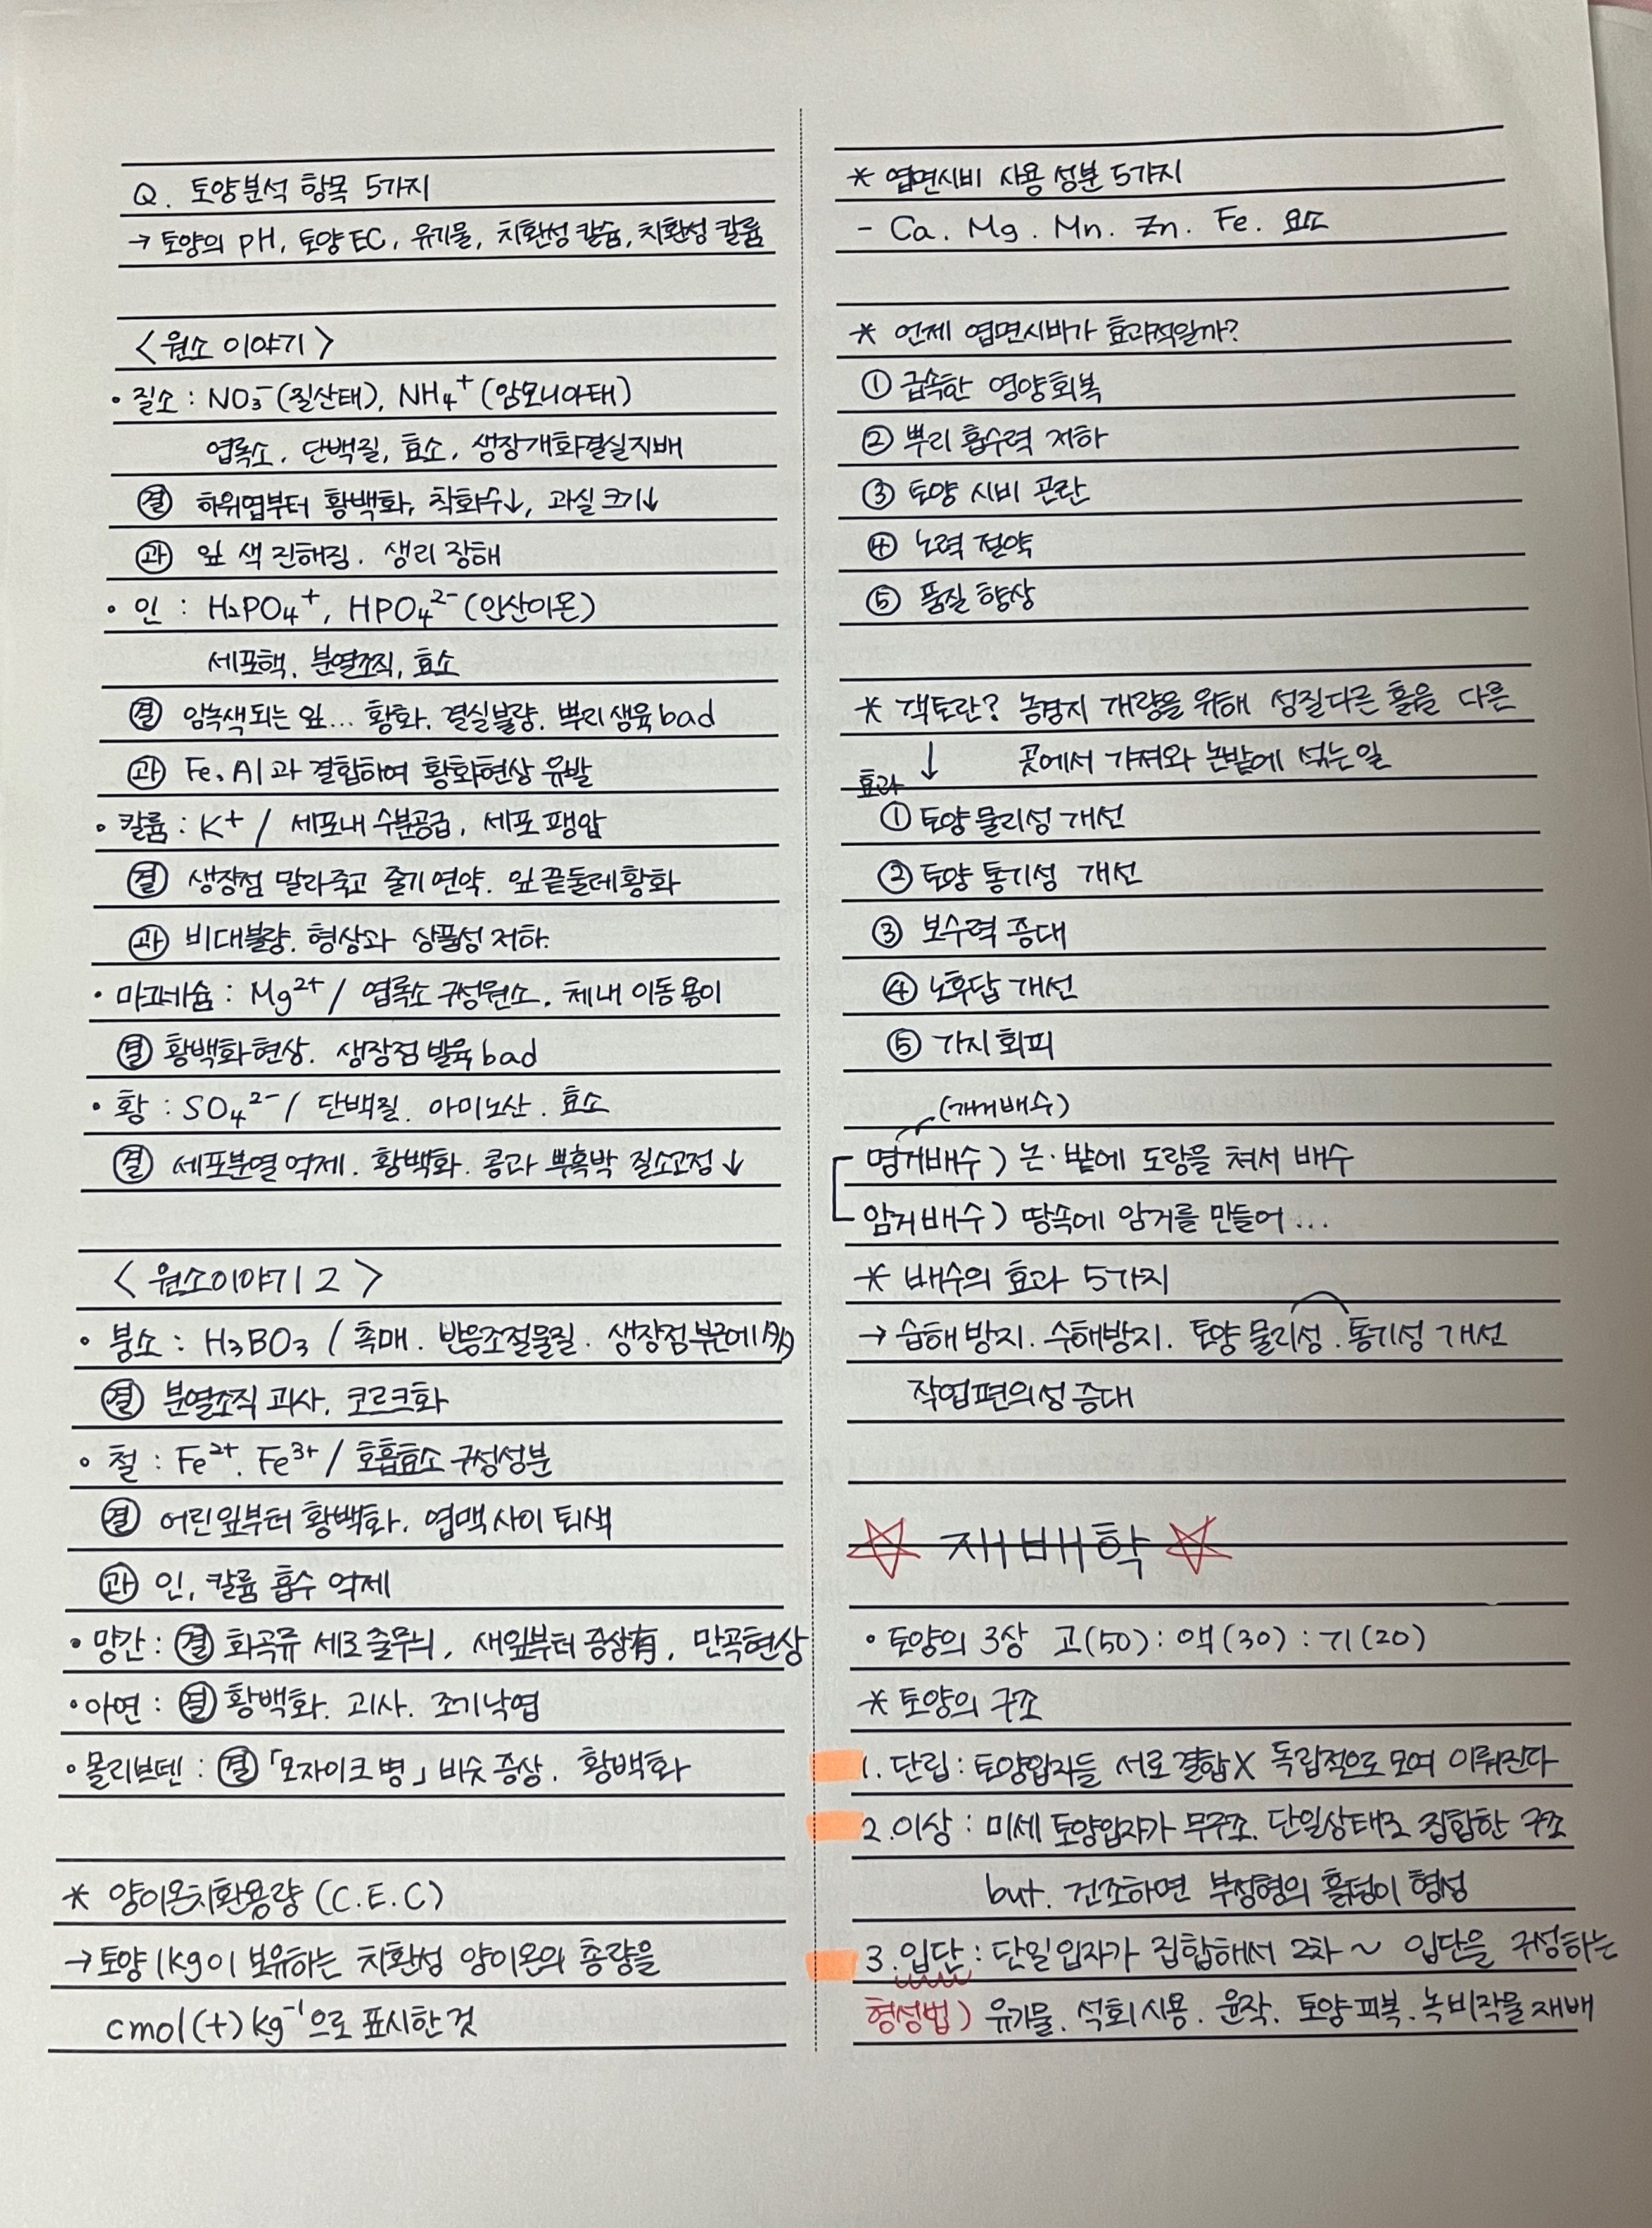 Q. 토양분석 항목 5가지
→ 토양의 pH, 토양 EC, 유기물, 치환성 칼슘, 치환성 칼륨
<원소 이야기>
• 질소 : NO₃⁻ (질산태), NH₄⁺ (암모니아태)
엽록소, 단백질, 효소, 생장개화결실지배
결 하위엽부터 황백화, 착화수↓, 과실 크기↓
과 잎 색 진해짐. 생리 장해
• 인 : H₂PO₄⁺, HPO₄²⁻ (인산이온)
세포핵, 분열조직, 효소
결 암녹색되는 잎... 황화. 결실불량. 뿌리 생육 bad
과 Fe, Al과 결합하여 황화현상 유발
• 칼륨 : K⁺ / 세포내 수분공급, 세포 팽압
결 생장점 말라죽고 줄기 연약. 잎 끝둘레 황화
과 비대불량. 형상과 상품성 저하.
• 마그네슘 : Mg²⁺ / 엽록소 구성원소, 체내 이동 용이
결 황백화 현상. 생장점 발육 bad
• 황 : SO₄²⁻ / 단백질. 아미노산. 효소
결 세포분열 억제. 황백화. 콩과 뿌혹박 질소고정 ↓
<원소이야기 2>
• 붕소 : H₃BO₃ / 촉매. 반응조절물질. 생장점부근에 多
결 분열조직 괴사. 코르크화
• 철 : Fe²⁺. Fe³⁺ / 호흡효소 구성성분
결 어린잎부터 황백화. 엽맥 사이 퇴색
과 인, 칼륨 흡수 억제
• 망간 : 결 화곡류 세로 줄무늬, 새잎부터 증상有, 만곡현상
• 아연 : 결 황백화. 괴사. 조기낙엽
• 몰리브덴 : 결 「모자이크 병」 비슷 증상. 황백화
* 양이온치환용량 (C.E.C)
→ 토양 1kg이 보유하는 치환성 양이온의 총량을
cmol(+)kg⁻¹으로 표시한 것
* 엽면시비 사용 성분 5가지
- Ca. Mg. Mn. Zn. Fe. 요소
* 언제 엽면시비가 효과적일까?
① 급속한 영양회복
② 뿌리 흡수력 저하
③ 토양 시비 곤란
④ 노력 절약
⑤ 품질 향상
* 객토란? 농경지 개량을 위해 성질다른 흙을 다른
↓ 곳에서 가져와 논밭에 섞는일
효과
① 토양 물리성 개선
② 토양 통기성 개선
③ 보수력 증대
④ 노후답 개선
⑤ 기지 회피
(개거배수)
명거배수) 논·밭에 도랑을 쳐서 배수
암거배수) 땅속에 암거를 만들어...
* 배수의 효과 5가지
→ 습해 방지. 수해방지. 토양 물리성. 통기성 개선
작업편의성 증대
☆ 재배학 ☆
• 토양의 3상 고(50) : 액(30) : 기(20)
* 토양의 구조
1. 단립 : 토양입자들 서로 결합X 독립적으로 모여 이뤄진다
2. 이상 : 미세 토양입자가 무구조. 단일상태로 집합한 구조
but. 건조하면 부정형의 흙덩이 형성
3. 입단 : 단일입자가 집합해서 2차 ~ 입단을 구성하는
형성법) 유기물. 석회시용. 윤작. 토양 피복. 녹비작물 재배